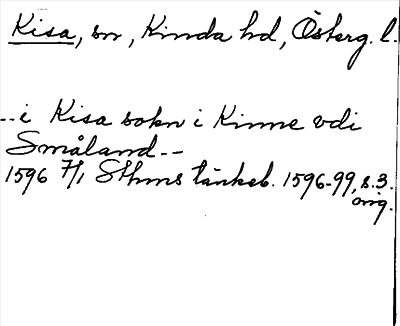 Kisa, sn, Kinda hd, Österg. l.
--i Kisa sokn i Kinne vdi
Småland--
1596 7/1 Sthms tänkeb. 1596-99, s. 3.
orig.